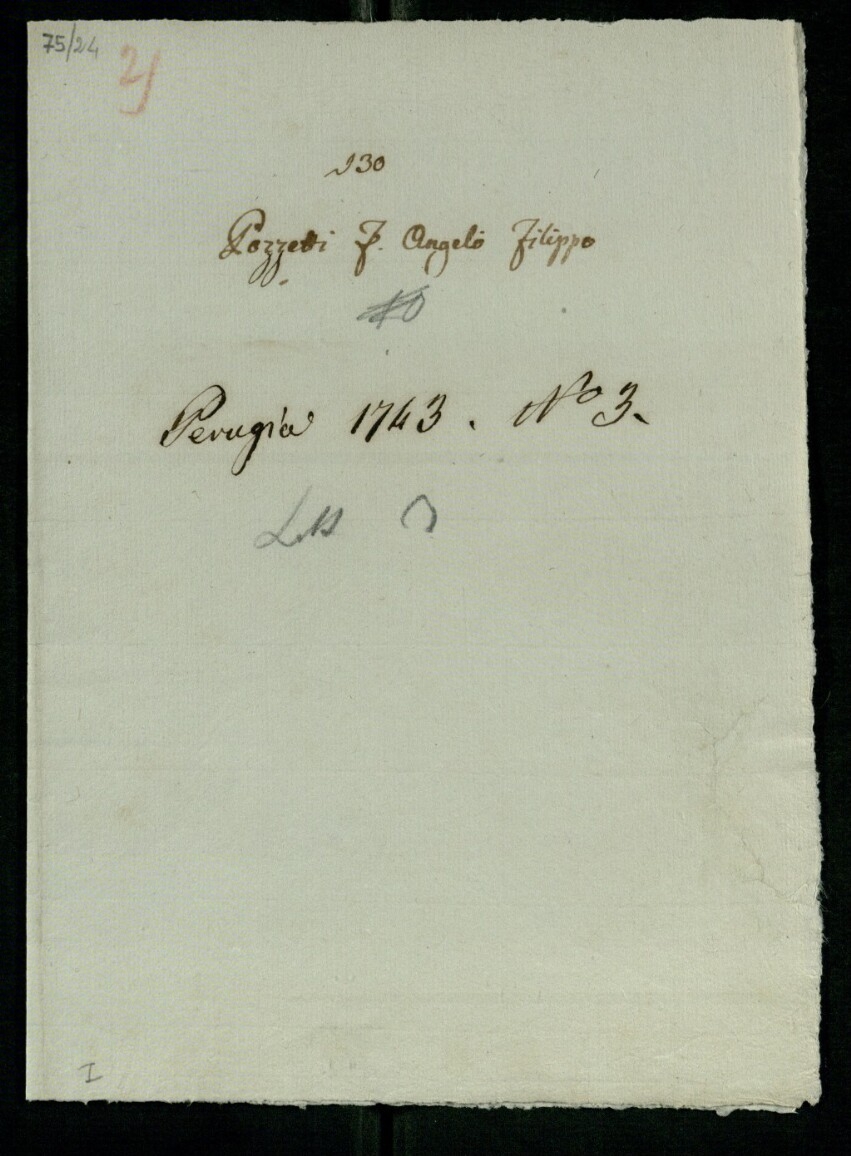 75/24
2)
930
Pozzetti F. Angelo Filippo
Perugia 1743. No 3.
I